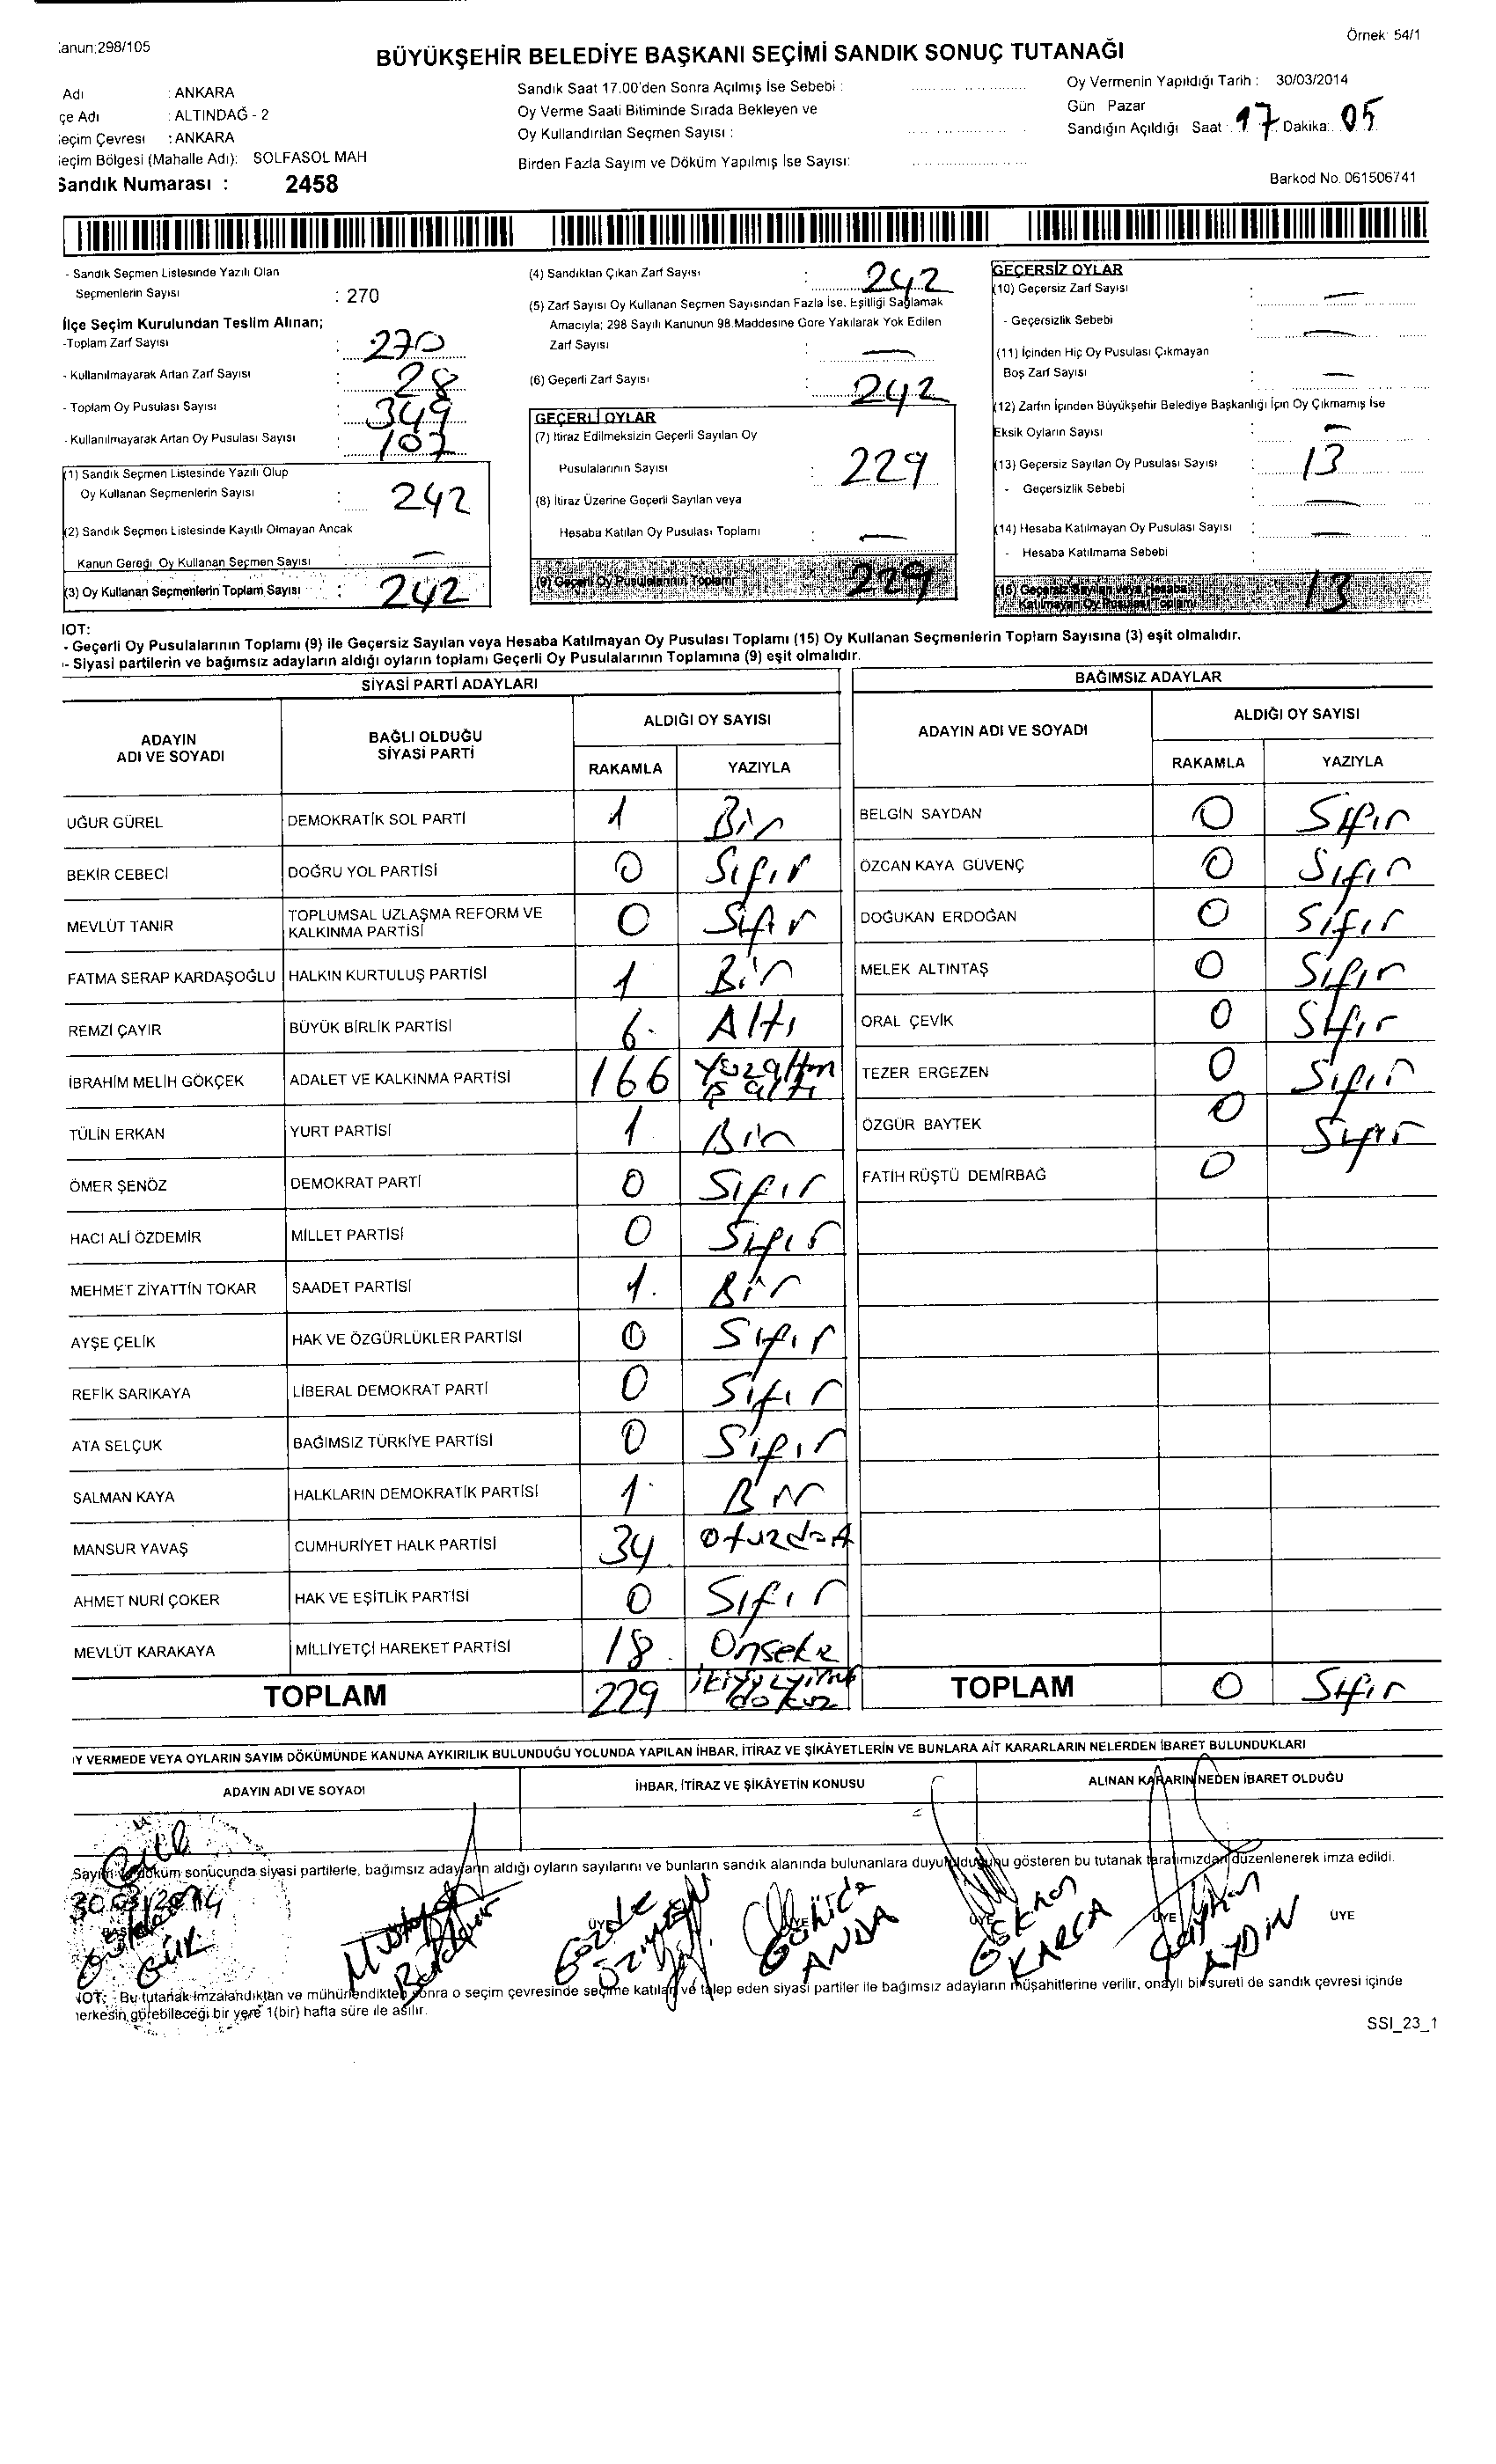 Kanun:298/105
Örnek: 54/1
BÜYÜKŞEHİR BELEDİYE BAŞKANI SEÇİMİ SANDIK SONUÇ TUTANAĞI
Adı : ANKARA
çe Adı : ALTINDAĞ - 2
eçim Çevresi : ANKARA
eçim Bölgesi (Mahalle Adı): SOLFASOL MAH
Sandık Numarası : 2458
Sandık Saat 17.00'den Sonra Açılmış İse Sebebi :
Oy Verme Saati Bitiminde Sırada Bekleyen ve
Oy Kullandırılan Seçmen Sayısı :
Birden Fazla Sayım ve Döküm Yapılmış İse Sayısı:
Oy Vermenin Yapıldığı Tarih : 30/03/2014
Gün Pazar
Sandığın Açıldığı Saat : 17 Dakika: 05
Barkod No. 061506741
- Sandık Seçmen Listesinde Yazılı Olan
Seçmenlerin Sayısı : 270
İlçe Seçim Kurulundan Teslim Alınan;
-Toplam Zarf Sayısı : 270
- Kullanılmayarak Artan Zarf Sayısı : 28
- Toplam Oy Pusulası Sayısı : 349
- Kullanılmayarak Artan Oy Pusulası Sayısı : 107
(1) Sandık Seçmen Listesinde Yazılı Olup
Oy Kullanan Seçmenlerin Sayısı : 242
(2) Sandık Seçmen Listesinde Kayıtlı Olmayan Ancak
Kanun Gereği Oy Kullanan Seçmen Sayısı : —
(3) Oy Kullanan Seçmenlerin Toplam Sayısı : 242
(4) Sandıktan Çıkan Zarf Sayısı : 242
(5) Zarf Sayısı Oy Kullanan Seçmen Sayısından Fazla İse, Eşitliği Sağlamak
Amacıyla; 298 Sayılı Kanunun 98.Maddesine Göre Yakılarak Yok Edilen
Zarf Sayısı : —
(6) Geçerli Zarf Sayısı : 242
GEÇERLİ OYLAR
(7) İtiraz Edilmeksizin Geçerli Sayılan Oy
Pusulalarının Sayısı : 229
(8) İtiraz Üzerine Geçerli Sayılan veya
Hesaba Katılan Oy Pusulası Toplamı : —
(9) Geçerli Oy Pusulalarının Toplamı 229
GEÇERSİZ OYLAR
(10) Geçersiz Zarf Sayısı : —
- Geçersizlik Sebebi : —
(11) İçinden Hiç Oy Pusulası Çıkmayan
Boş Zarf Sayısı : —
(12) Zarfın İçinden Büyükşehir Belediye Başkanlığı İçin Oy Çıkmamış İse
Eksik Oyların Sayısı : —
(13) Geçersiz Sayılan Oy Pusulası Sayısı : 13
- Geçersizlik Sebebi : —
(14) Hesaba Katılmayan Oy Pusulası Sayısı : —
- Hesaba Katılmama Sebebi :
(15) Geçersiz Sayılan veya Hesaba
Katılmayan Oy Pusulası Toplamı 13
NOT:
- Geçerli Oy Pusulalarının Toplamı (9) ile Geçersiz Sayılan veya Hesaba Katılmayan Oy Pusulası Toplamı (15) Oy Kullanan Seçmenlerin Toplam Sayısına (3) eşit olmalıdır.
- Siyasi partilerin ve bağımsız adayların aldığı oyların toplamı Geçerli Oy Pusulalarının Toplamına (9) eşit olmalıdır.
SİYASİ PARTİ ADAYLARI
ADAYIN ADI VE SOYADI BAĞLI OLDUĞU SİYASİ PARTİ ALDIĞI OY SAYISI
RAKAMLA YAZIYLA
UĞUR GÜREL DEMOKRATİK SOL PARTİ 1 Bir
BEKİR CEBECİ DOĞRU YOL PARTİSİ 0 Sıfır
MEVLÜT TANIR TOPLUMSAL UZLAŞMA REFORM VE KALKINMA PARTİSİ 0 Sıfır
FATMA SERAP KARDAŞOĞLU HALKIN KURTULUŞ PARTİSİ 1 Bir
REMZİ ÇAYIR BÜYÜK BİRLİK PARTİSİ 6 Altı
İBRAHİM MELİH GÖKÇEK ADALET VE KALKINMA PARTİSİ 166 Yüzaltmış altı
TÜLİN ERKAN YURT PARTİSİ 1 Bir
ÖMER ŞENÖZ DEMOKRAT PARTİ 0 Sıfır
HACI ALİ ÖZDEMİR MİLLET PARTİSİ 0 Sıfır
MEHMET ZİYATTİN TOKAR SAADET PARTİSİ 1 Bir
AYŞE ÇELİK HAK VE ÖZGÜRLÜKLER PARTİSİ 0 Sıfır
REFİK SARIKAYA LİBERAL DEMOKRAT PARTİ 0 Sıfır
ATA SELÇUK BAĞIMSIZ TÜRKİYE PARTİSİ 0 Sıfır
SALMAN KAYA HALKLARIN DEMOKRATİK PARTİSİ 1 Bir
MANSUR YAVAŞ CUMHURİYET HALK PARTİSİ 34 otuzdört
AHMET NURİ ÇOKER HAK VE EŞİTLİK PARTİSİ 0 Sıfır
MEVLÜT KARAKAYA MİLLİYETÇİ HAREKET PARTİSİ 18 Onsekiz
TOPLAM 229 ikiyüzyirmi dokuz
BAĞIMSIZ ADAYLAR
ADAYIN ADI VE SOYADI ALDIĞI OY SAYISI
RAKAMLA YAZIYLA
BELGİN SAYDAN 0 Sıfır
ÖZCAN KAYA GÜVENÇ 0 Sıfır
DOĞUKAN ERDOĞAN 0 Sıfır
MELEK ALTINTAŞ 0 Sıfır
ORAL ÇEVİK 0 Sıfır
TEZER ERGEZEN 0 Sıfır
ÖZGÜR BAYTEK 0 Sıfır
FATİH RÜŞTÜ DEMİRBAĞ 0
TOPLAM 0 Sıfır
OY VERMEDE VEYA OYLARIN SAYIM DÖKÜMÜNDE KANUNA AYKIRILIK BULUNDUĞU YOLUNDA YAPILAN İHBAR, İTİRAZ VE ŞİKÂYETLERİN VE BUNLARA AİT KARARLARIN NELERDEN İBARET BULUNDUKLARI
ADAYIN ADI VE SOYADI İHBAR, İTİRAZ VE ŞİKÂYETİN KONUSU ALINAN KARARIN NEDEN İBARET OLDUĞU
Sayım ve döküm sonucunda siyasi partilerle, bağımsız adayların aldığı oyların sayılarını ve bunların sandık alanında bulunanlara duyurulduğunu gösteren bu tutanak tarafımızdan düzenlenerek imza edildi.
30.03.2014
ÜYE ÜYE ÜYE ÜYE ÜYE
Gözde Gökhan KARCA Ayhan AYDIN
NOT: Bu tutanak imzalandıktan ve mühürlendikten sonra o seçim çevresinde seçime katılan ve talep eden siyasi partiler ile bağımsız adayların müşahitlerine verilir, onaylı bir sureti de sandık çevresi içinde
herkesin görebileceği bir yere 1(bir) hafta süre ile asılır.
SSI_23_1